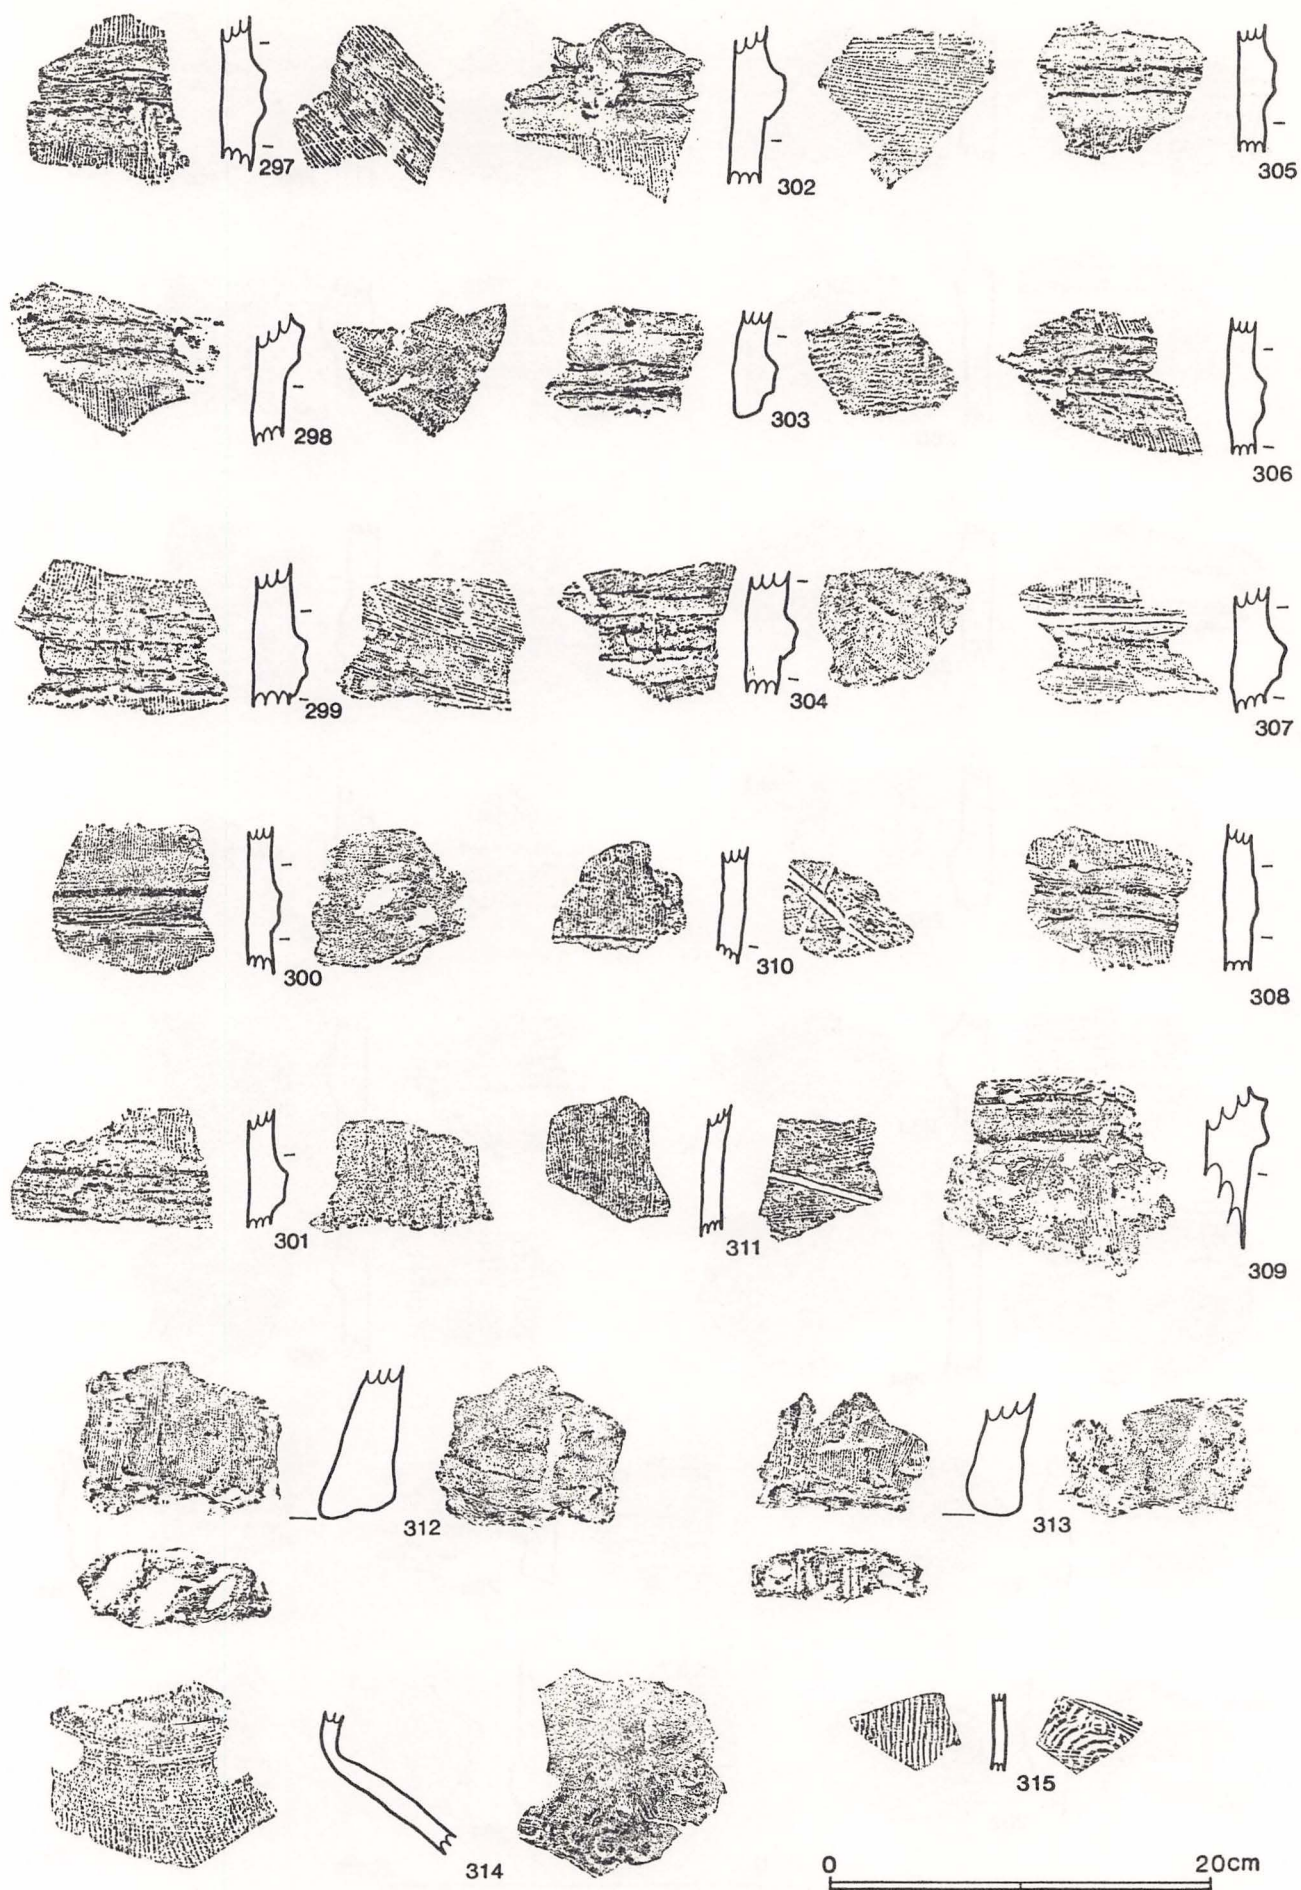 297
302
305
298
303
306
299
304
307
300
310
308
301
311
309
312
313
314
315
0 20cm